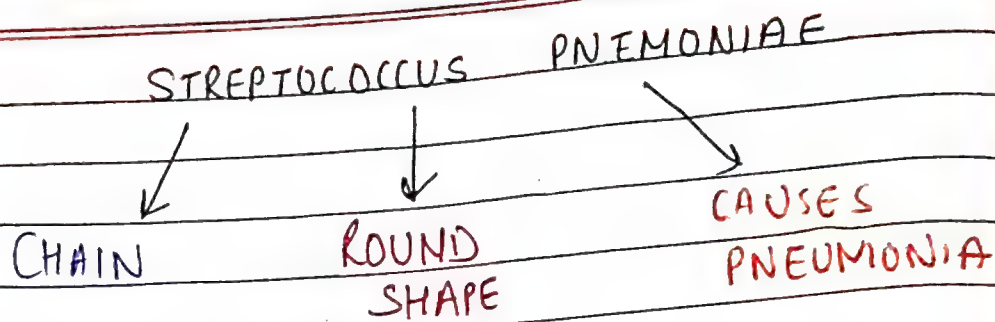 STREPTOCOCCUS PNEMONIAE
CHAIN
ROUND
SHAPE
CAUSES
PNEUMONIA